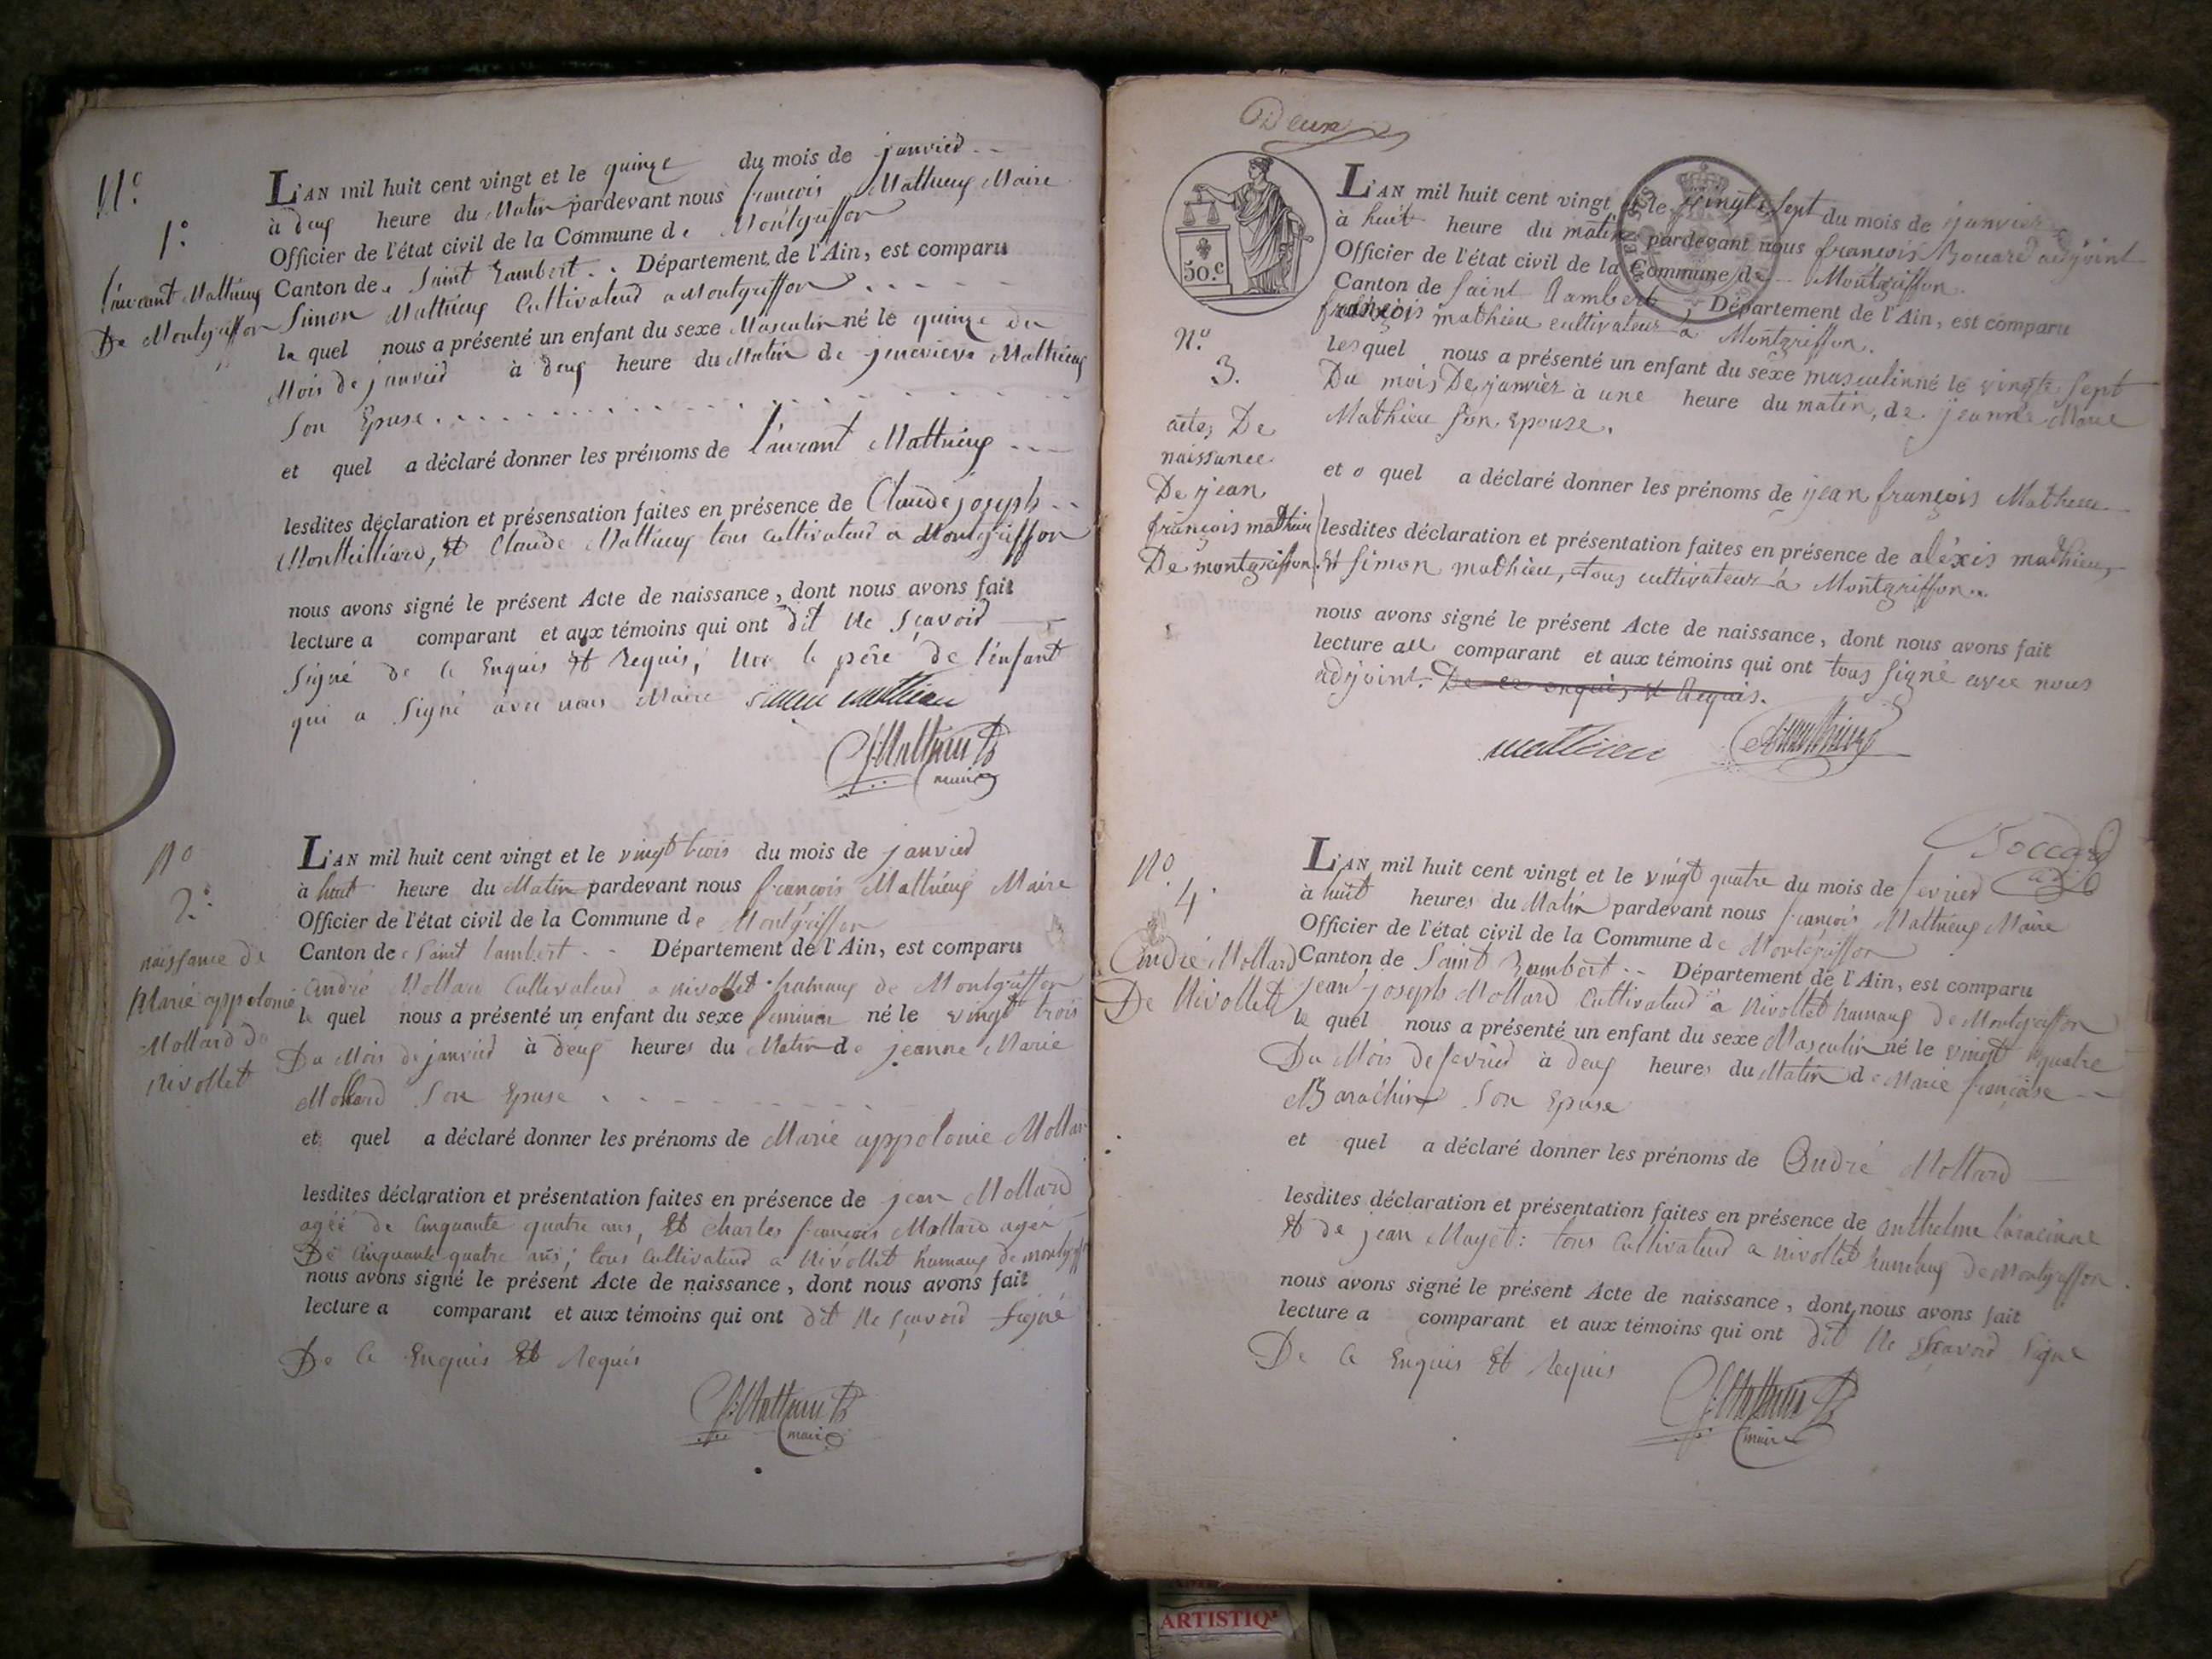 N.º
1.º
Laurant Mathieux
De Montgriffon
L'AN mil huit cent vingt et le quinze du mois de janvier
à deux heure du Matin pardevant nous françois Mathieux Maire
Officier de l'état civil de la Commune de Montgriffon
Canton de Saint Rambert Département de l'Ain, est comparu
Simon Mathieux Cultivateur a Montgriffon
le quel nous a présenté un enfant du sexe Masculin né le quinze du
Mois de janvier à deux heure du Matin de jenevieve Mathieux
Son Epuse
et quel a déclaré donner les prénoms de Laurant Mathieux
lesdites déclaration et présensation faites en présence de Claude joseph
Montillard, Et Claude Mathieux tous cultivateur a Montgriffon
nous avons signé le présent Acte de naissance, dont nous avons fait
lecture a comparant et aux témoins qui ont dit Ne Scavoir
Signé de Ce Enquis Et Requis, le père de l'enfant
qui a Signé avec nous Maire simon mathieu
f. Mathieux
maire
N.º
2.º
naissance de
Marie appolonie
Mollard De
Nivollet
L'AN mil huit cent vingt et le vingt trois du mois de janvier
à huit heure du Matin pardevant nous françois Mathieux Maire
Officier de l'état civil de la Commune de Montgriffon
Canton de Saint Rambert Département de l'Ain, est comparu
André Mollard Cultivateur a nivollet hamaux de Montgriffon
le quel nous a présenté un enfant du sexe feminin né le vingt trois
Du Mois de janvier à deux heures du Matin de jeanne Marie
Mollard Son Epuse
et quel a déclaré donner les prénoms de Marie appolonie Mollar
lesdites déclaration et présentation faites en présence de jean Mollard
agéé de Cinquante quatre ans, Et charles françois Mollard agéé
De Cinquante quatre ans; tous Cultivateur a Nivollet hamaux de montgff
nous avons signé le présent Acte de naissance, dont nous avons fait
lecture a comparant et aux témoins qui ont dit Ne Scavoir Signé
De Ce Enquis Et Requis
f. Mathieux
maire
Deux
50.c
N.º
3.
acte, De
naissance
De jean
françois mathieu
De montgriffon.
L'AN mil huit cent vingt et le vingte Sept du mois de janvier
à huit heure du matin pardevant nous françois Bouard adjoint
Officier de l'état civil de la Commune de Montgriffon.
Canton de Saint Rambert Département de l'Ain, est comparu
françois mathieu cultivateur à Montgriffon.
lesquel nous a présenté un enfant du sexe masculin né le vingte Sept
Du mois De janvier à une heure du matin, de jeanne Marie
Mathieu Son Epouse.
et o quel a déclaré donner les prénoms de jean françois Mathieu
lesdites déclaration et présentation faites en présence de aléxis mathieu,
Et Simon mathieu, tous cultivateur à Montgriffon.
nous avons signé le présent Acte de naissance, dont nous avons fait
lecture aux comparant et aux témoins qui ont tous Signé avec nous
adjoint. De ce enquis et Requis.
mathieu
Boccard
adj
N.º
4.
André Mollard
De Nivollet
L'AN mil huit cent vingt et le vingt quatre du mois de fevrier
à huit heures du Matin pardevant nous françois Mathieux Maire
Officier de l'état civil de la Commune de Montgriffon
Canton de Saint Rambert Département de l'Ain, est comparu
jean joseph Mollard Cultivateur a Nivollet hamaux De Montgriffon
le quel nous a présenté un enfant du sexe Masculin né le vingt quatre
Du Mois de fevrier à deux heures du Matin de Marie françoise
Barachin Son Epuse
et quel a déclaré donner les prénoms de André Mollard
lesdites déclaration et présentation faites en présence de anthelme
Et de jean Mayet: tous Cultivateur a nivollet hamaux De Montgriffon.
nous avons signé le présent Acte de naissance, dont nous avons fait
lecture a comparant et aux témoins qui ont dit Ne Scavoir Signe
De Ce Enquis Et Requis
f. Mathieux
maire
ARTISTIQ